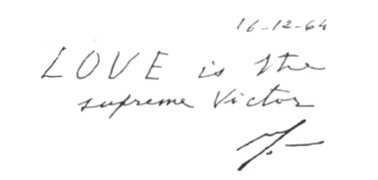 16-12-64
LOVE is the
supreme Victor